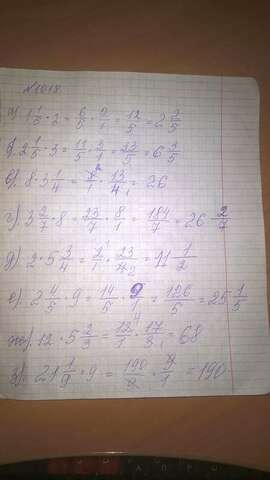 №1018
а) 1 1/5 · 2 = 6/5 · 2/1 = 12/5 = 2 2/5
б) 2 1/5 · 3 = 11/5 · 3/1 = 33/5 = 6 3/5
в) 8 · 3 1/4 = 8/1 · 13/4 = 26
г) 3 2/7 · 8 = 23/7 · 8/1 = 184/7 = 26 2/7
д) 2 · 5 3/4 = 2/1 · 23/4 = 11 1/2
е) 2 4/5 · 9 = 14/5 · 9/1 = 126/5 = 25 1/5
ж) 12 · 5 2/3 = 12/1 · 17/3 = 68
з) 21 1/9 · 9 = 190/9 · 9/1 = 190